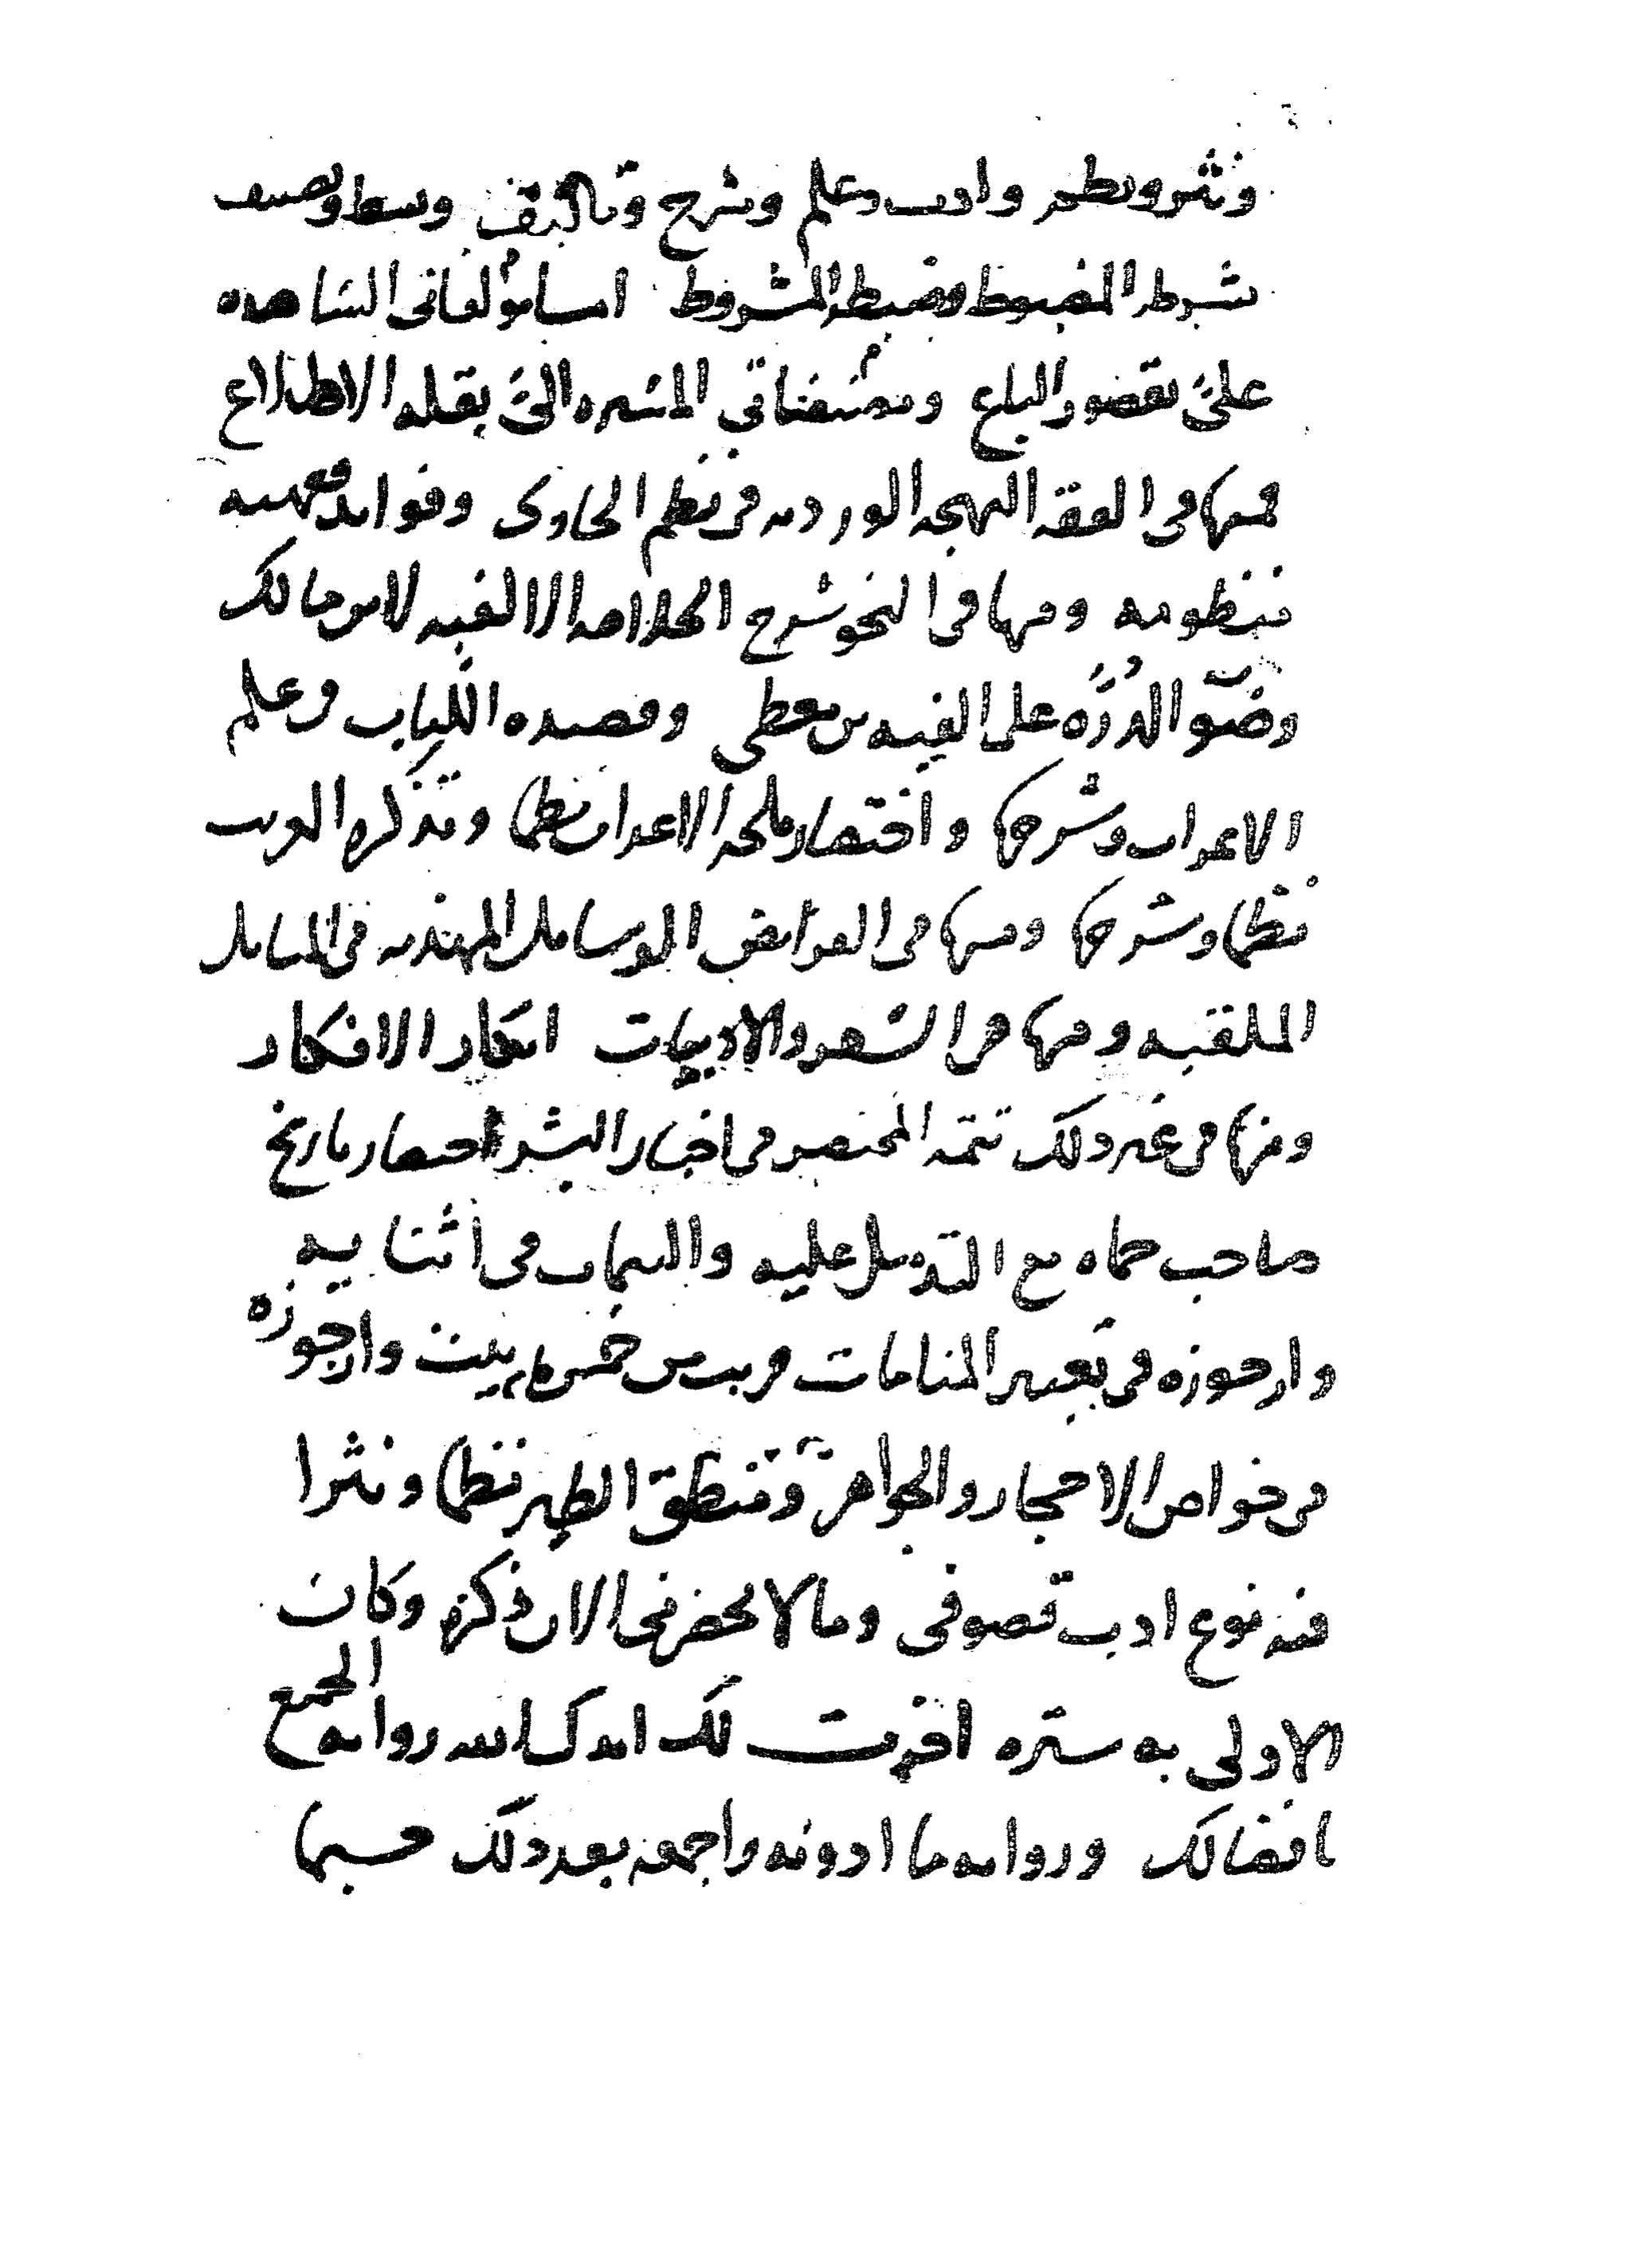 ونثر ونظم وادب وعلم وشرح وتاليف وبسط وتصنيف
بشرطه المضبوط وضبطه المشروط اما مؤلفاتي الشاهده
عليَّ بقصور الباع ومصنفاتي المشيره اليَّ بقله الاطلاع
فمنها في الفقه البهجه الورديه في نظم الحاوي وفوايد فقهيه
منظومه ومنها في النحو شرح الخلاصه الالفيه لابن مالك
وضوّ الدُرَّه على الفيه بن معطي وقصيده اللباب في علم
الاعراب وشرحها واختصار ملحه الاعراب نظما وتذكره الغريب
نظما وشرحها ومنها في الفرايض الوسايل المهذبه في المسايل
الملقبه ومنها في الشعر والادبيات ابكار الافكار
ومنها في غير ذلك تتمه المختصر في اخبار البشر اختصار تاريخ
صاحب حماه مع التذييل عليه والبيمات في اثنايه
وارجوزه في تعبير المنامات قريب من خمس ماية بيت وارجوزه
في خواص الاحجار والجواهر ومنطق الطير نظما ونثرا
فيه نوع ادب تصوفي وما لا يحضرني الان ذكره وكان
الاولى به ستره اخزت لك ايدك الله روايه الجميع
بافضالك وروايه ما ادونه واجمعه بعد ذلك حسبما